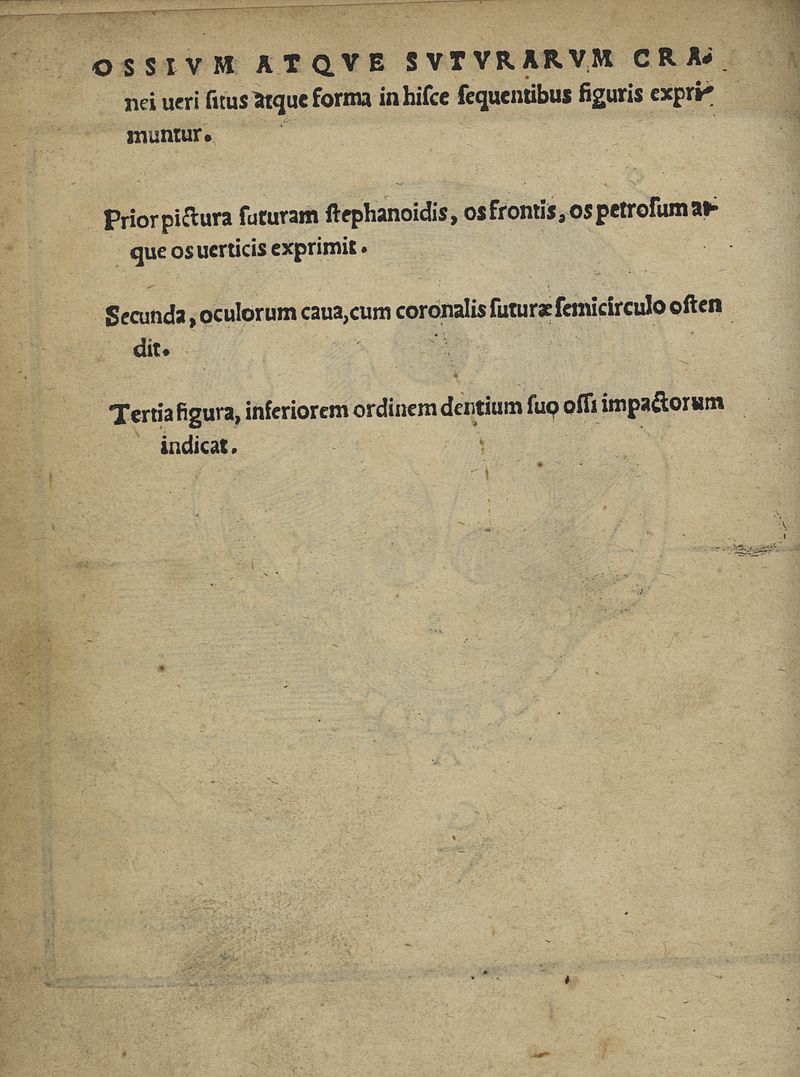 OSSIVM ATQVE SVTVRARVM CRA-
nei ueri ſitus atque forma in hiſce ſequentibus figuris expri-
muntur.
Prior pictura ſuturam ſtephanoidis, os frontis, os petroſum at-
que os uerticis exprimit.
Secunda, oculorum caua, cum coronalis ſuturæ ſemicirculo oſten
dit.
Tertia figura, inferiorem ordinem dentium ſuo oſſi impactorum
indicat.